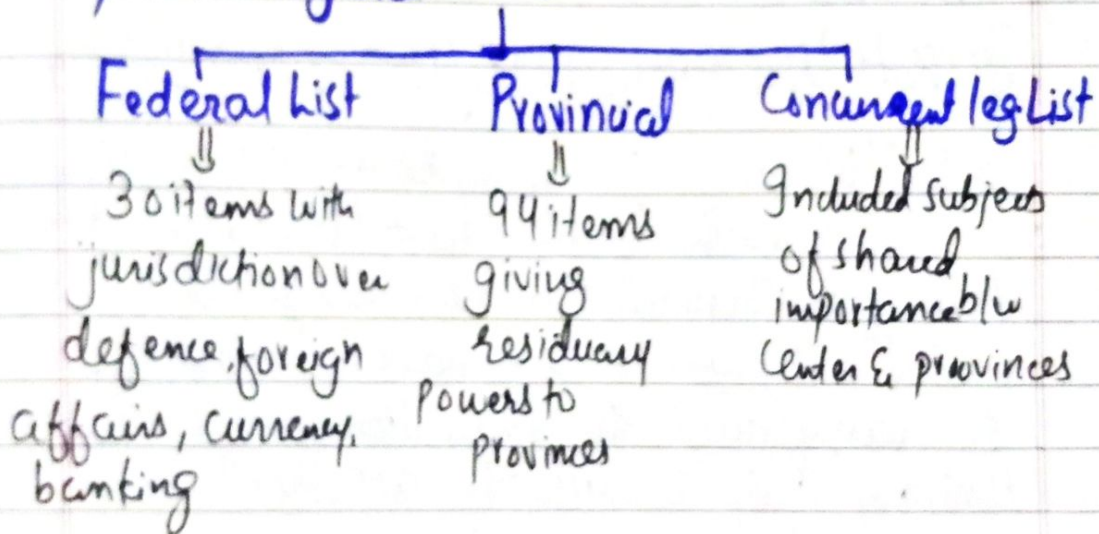 Federal List
30 items with
jurisdiction over
defence, foreign
affairs, currency,
banking
Provincial
94 items
giving
residuary
powers to
provinces
Concurrent leg List
Included subjects
of shared
importance b/w
Center & proovinces